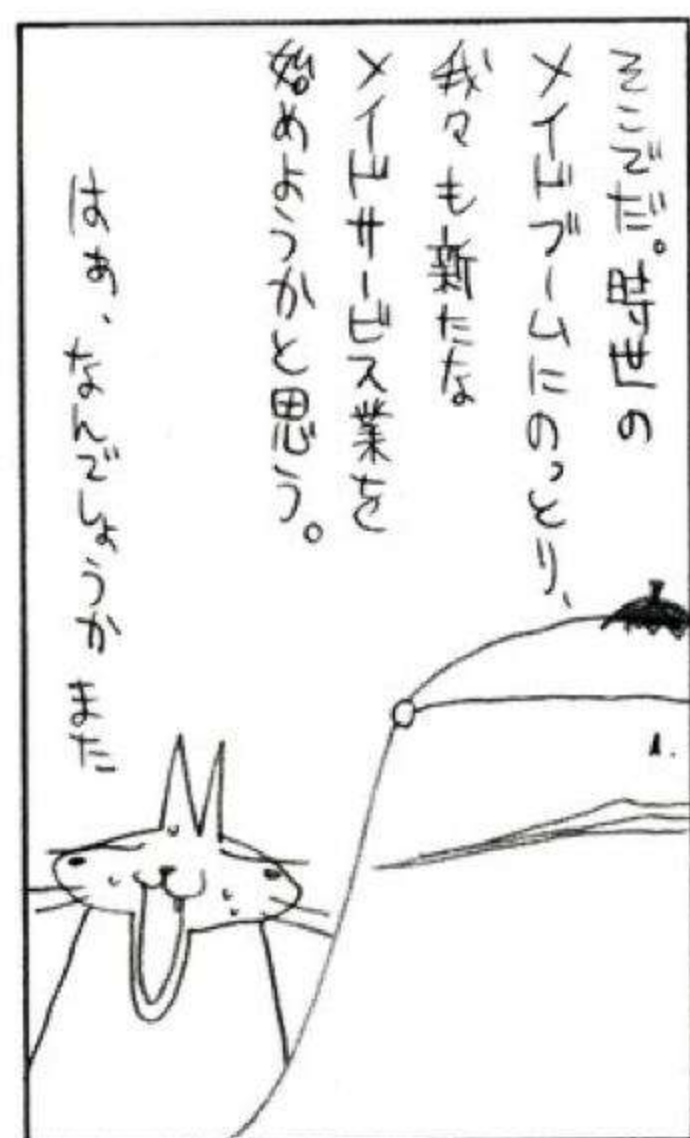 そこでだ。時世の
メイドブームにのっとり、
我々も新たな
メイドサービス業を
始めようかと思う。
はあ、なんでしょうか また